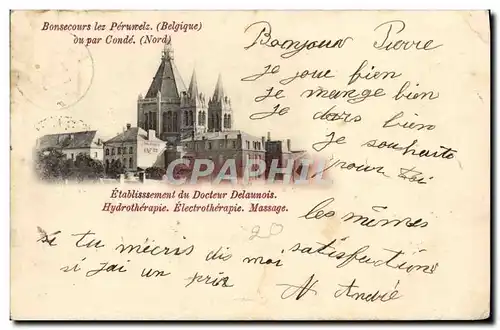 Bonsecours lez Péruwelz. (Belgique)
ou par Condé. (Nord)
Bonjour Pierre
Je joue bien
Je mange bien
Je dors bien
Je souhaite
pour toi
CPARAMA
Établissement du Docteur Delaunois.
Hydrothérapie. Électrothérapie. Massage.
les mêmes
satisfactions
si tu m'écris dis moi
si j'ai un prix
André